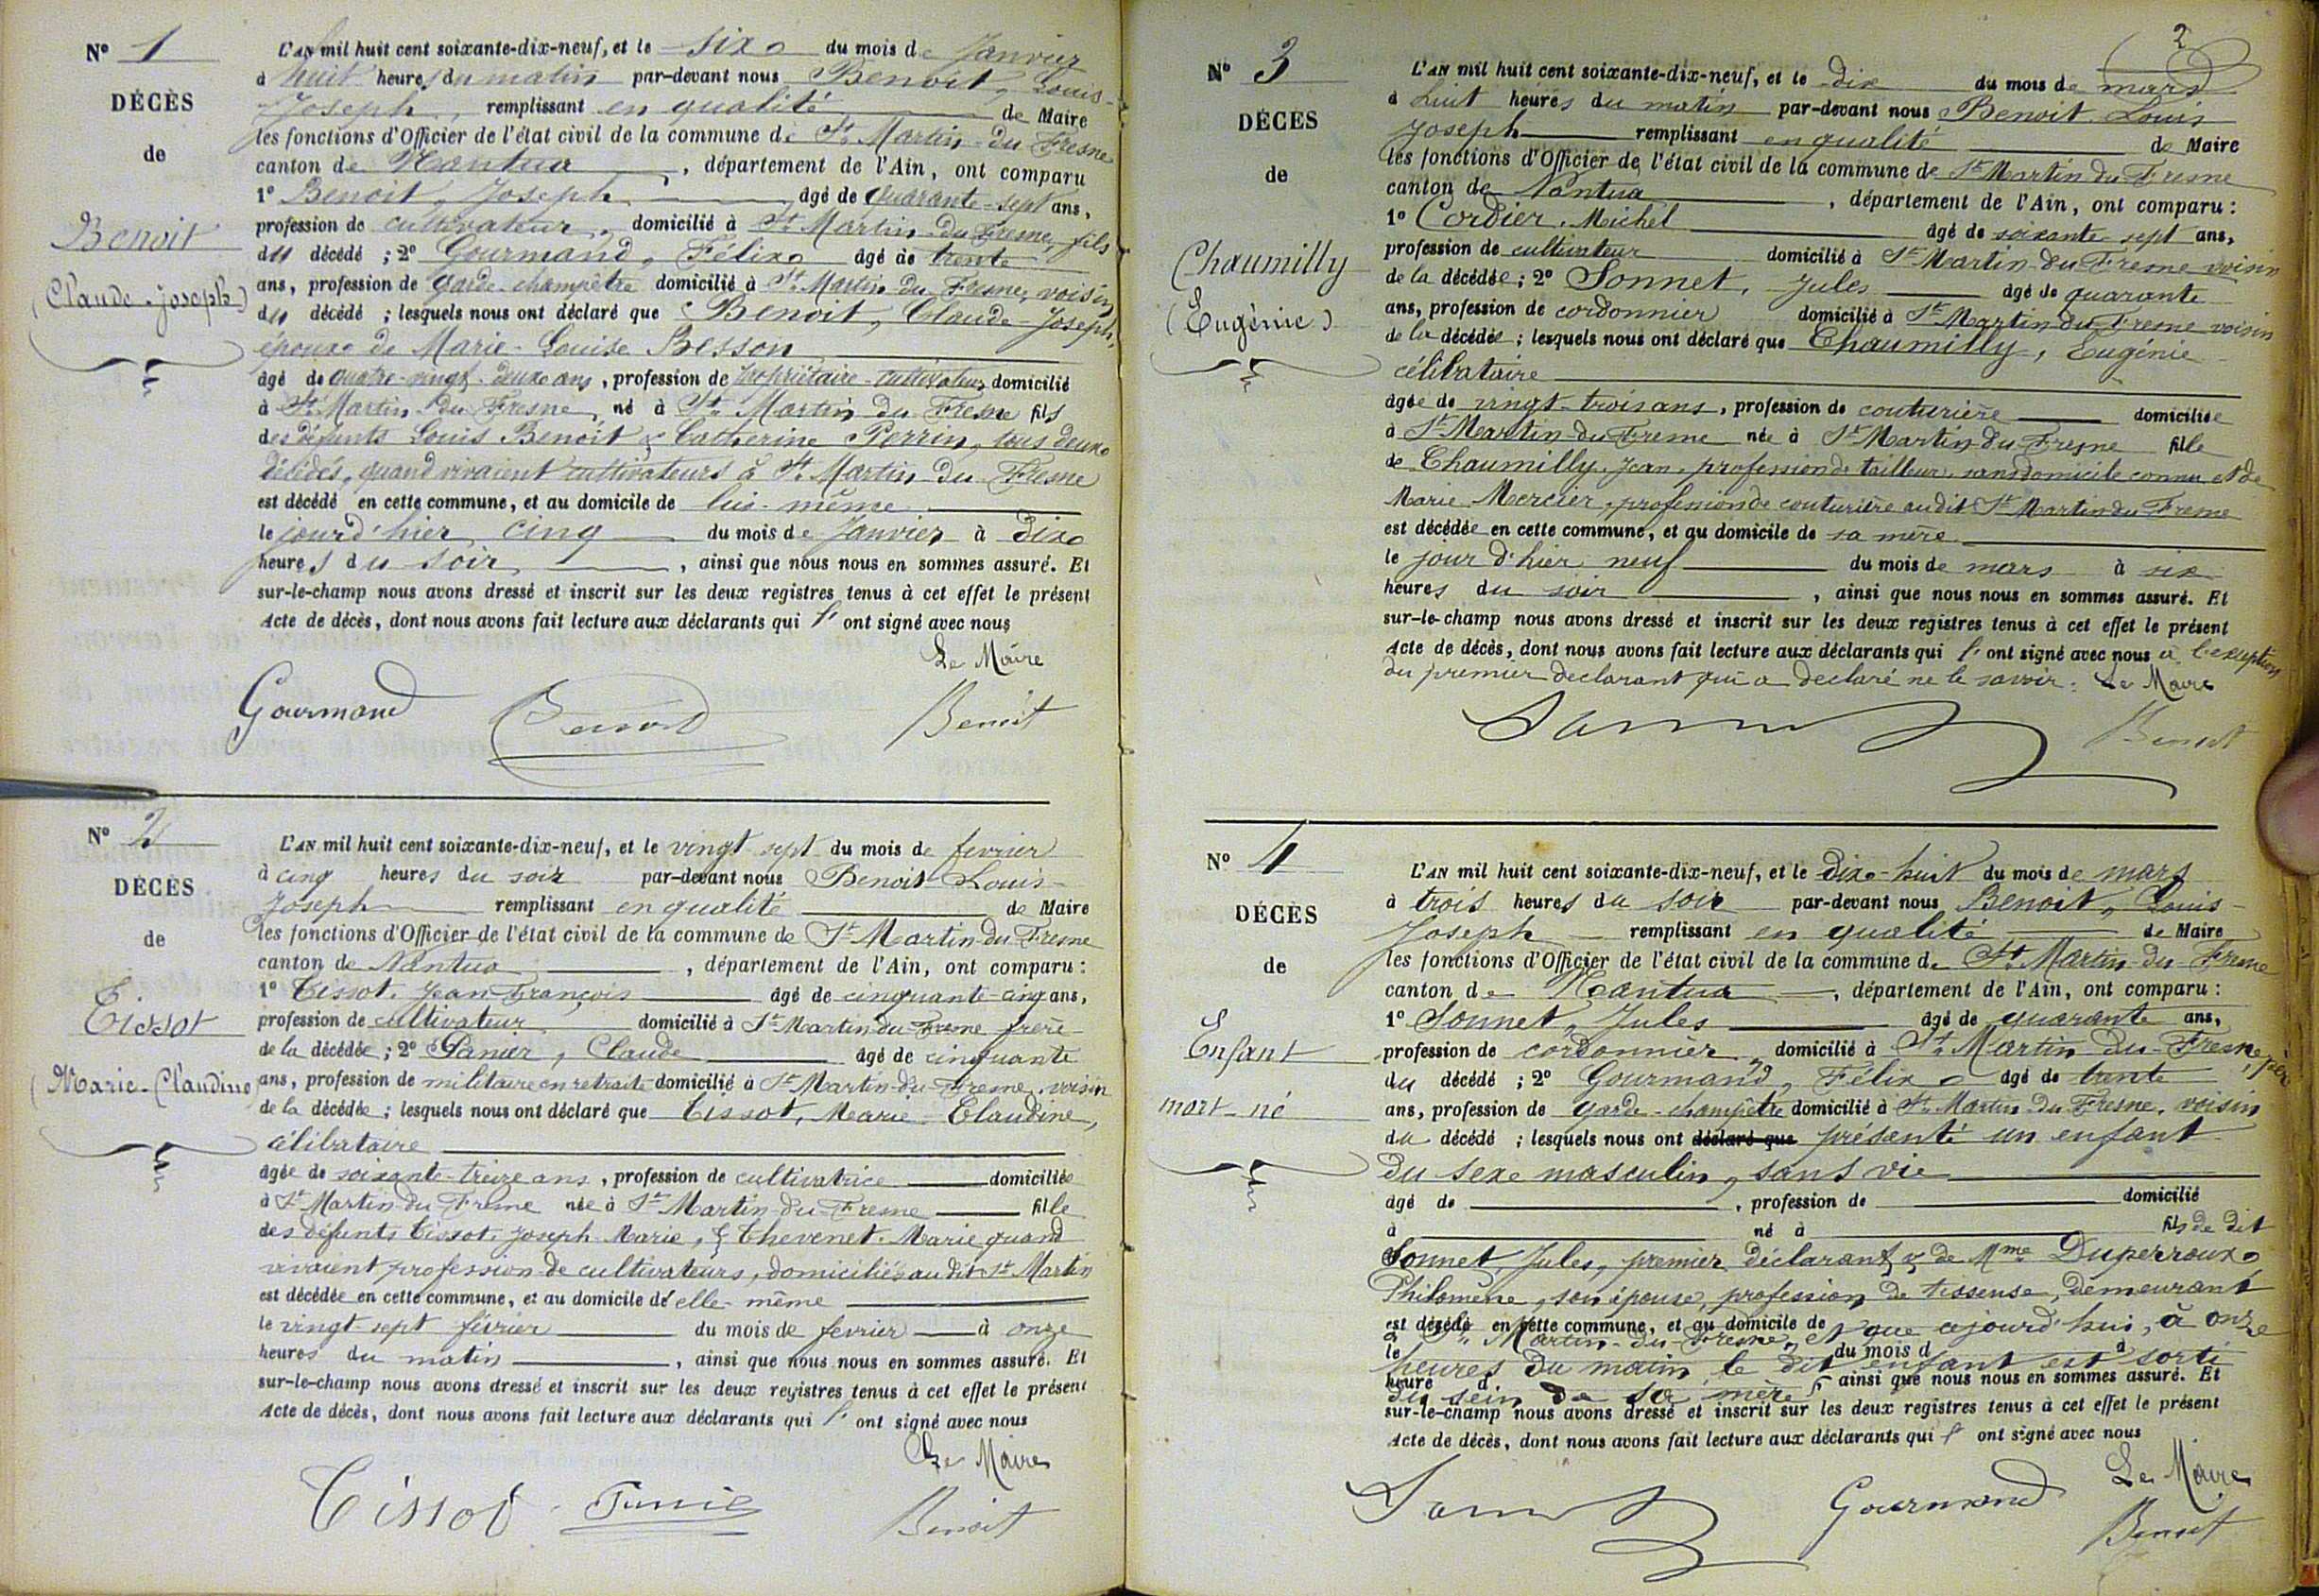 N° 1
DÉCÈS
de
Benoit
(Claude-Joseph)
L'AN mil huit cent soixante-dix-neuf, et le six du mois de Janvier
à huit heures du matin par-devant nous Benoit, Louis-
Joseph, remplissant en qualité de Maire
les fonctions d'Officier de l'état civil de la commune de St Martin-du-Fresne
canton de Nantua, département de l'Ain, ont comparu
1° Benoit, Joseph âgé de quarante-sept ans,
profession de cultivateur, domicilié à St Martin-du-Fresne, fils
du décédé ; 2° Gourmand, Félix âgé de trente
ans, profession de garde-champêtre domicilié à St Martin du Fresne, voisin
du décédé ; lesquels nous ont déclaré que Benoit, Claude-Joseph,
époux de Marie-Louise Besson
âgé de quatre-vingt-deux ans, profession de propriétaire-cultivateur domicilié
à St Martin-du-Fresne, né à St Martin du Fresne fils
des défunts Louis Benoit & Catherine Perrin, tous deux
décédés, quand vivaient cultivateurs à St Martin-du-Fresne
est décédé en cette commune, et au domicile de lui-même
le jourd'hier cinq du mois de Janvier à dix
heures du soir, ainsi que nous nous en sommes assuré. Et
sur-le-champ nous avons dressé et inscrit sur les deux registres tenus à cet effet le présent
Acte de décès, dont nous avons fait lecture aux déclarants qui l' ont signé avec nous
Le Maire
Gourmand Benoit Benoit
N° 2
DÉCÈS
de
Tissot
(Marie-Claudine)
L'AN mil huit cent soixante-dix-neuf, et le vingt sept du mois de fevrier
à cinq heures du soir par-devant nous Benoit Louis-
Joseph remplissant en qualité de Maire
les fonctions d'Officier de l'état civil de la commune de St Martin-du-Fresne
canton de Nantua, département de l'Ain, ont comparu :
1° Tissot, Jean-François âgé de cinquante-cinq ans,
profession de cultivateur domicilié à St Martin-du-Fresne frère
de la décédée ; 2° Claude âgé de cinquante
ans, profession de militaire en retraite domicilié à St Martin-du-Fresne, voisin
de la décédée ; lesquels nous ont déclaré que Tissot, Marie-Claudine,
célibataire
âgée de soixante-treize ans, profession de cultivatrice domiciliée
à St Martin-du-Fresne née à St Martin-du-Fresne fille
des défunts Tissot, Joseph-Marie, & Thevenet, Marie quand
vivaient profession de cultivateurs, domiciliés audit St Martin
est décédée en cette commune, et au domicile de elle-même
le vingt-sept février du mois de fevrier à onze
heures du matin, ainsi que nous nous en sommes assuré. Et
sur-le-champ nous avons dressé et inscrit sur les deux registres tenus à cet effet le présent
Acte de décès, dont nous avons fait lecture aux déclarants qui l' ont signé avec nous
Le Maire
Tissot Benoit
2
N° 3
DÉCÈS
de
Chaumilly
(Eugénie)
L'AN mil huit cent soixante-dix-neuf, et le dix du mois de mars
à huit heures du matin par-devant nous Benoit Louis
Joseph remplissant en qualité de Maire
les fonctions d'Officier de l'état civil de la commune de St Martin du Fresne
canton de Nantua, département de l'Ain, ont comparu :
1° Cordier, Michel âgé de soixante sept ans,
profession de cultivateur domicilié à St Martin-du-Fresne voisin
de la décédée ; 2° Sonnet, Jules âgé de quarante
ans, profession de cordonnier domicilié à St Martin-du-Fresne voisin
de la décédée ; lesquels nous ont déclaré que Chaumilly, Eugénie
célibataire
âgée de vingt-trois ans, profession de couturière domiciliée
à St Martin-du-Fresne née à St Martin-du-Fresne fille
de Chaumilly, Jean, profession de tailleur, sans domicile connu et de
Marie Mercier, profession de couturière audit St Martin du Fresne
est décédée en cette commune, et au domicile de sa mère
le jour d'hier neuf du mois de mars à six
heures du soir, ainsi que nous nous en sommes assuré. Et
sur-le-champ nous avons dressé et inscrit sur les deux registres tenus à cet effet le présent
Acte de décès, dont nous avons fait lecture aux déclarants qui l' ont signé avec nous à l'exception
du premier declarant qui a declaré ne le savoir. Le Maire
Sonnet Benoit
N° 4
DÉCÈS
de
Enfant
mort-né
L'AN mil huit cent soixante-dix-neuf, et le dix-huit du mois de mars
à trois heures du soir par-devant nous Benoit, Louis-
Joseph remplissant en qualité de Maire
les fonctions d'Officier de l'état civil de la commune de St Martin-du-Fresne
canton de Nantua, département de l'Ain, ont comparu :
1° Sonnet, Jules âgé de quarante ans,
profession de cordonnier, domicilié à St Martin-du-Fresne, père
du décédé ; 2° Gourmand, Félix âgé de trente
ans, profession de garde-champêtre domicilié à St Martin du Fresne, voisin
du décédé ; lesquels nous ont déclaré que présenté un enfant
du sexe masculin, sans vie
âgé de , profession de domicilié
à né à fils de dit
Sonnet, Jules, premier déclarant & de Mme Duperroux
Philomène, son épouse, profession de tisseuse, demeurant
est décédé en cette commune, et au domicile de
à St Martin-du-Fresne, et que cejourd'hui, à onze
le du mois d à
heures du matin le dit enfant est sorti
heure d , ainsi que nous nous en sommes assuré. Et
du sein de sa mère
sur-le-champ nous avons dressé et inscrit sur les deux registres tenus à cet effet le présent
Acte de décès, dont nous avons fait lecture aux déclarants qui l' ont signé avec nous
Le Maire
Sonnet Gourmand Benoit